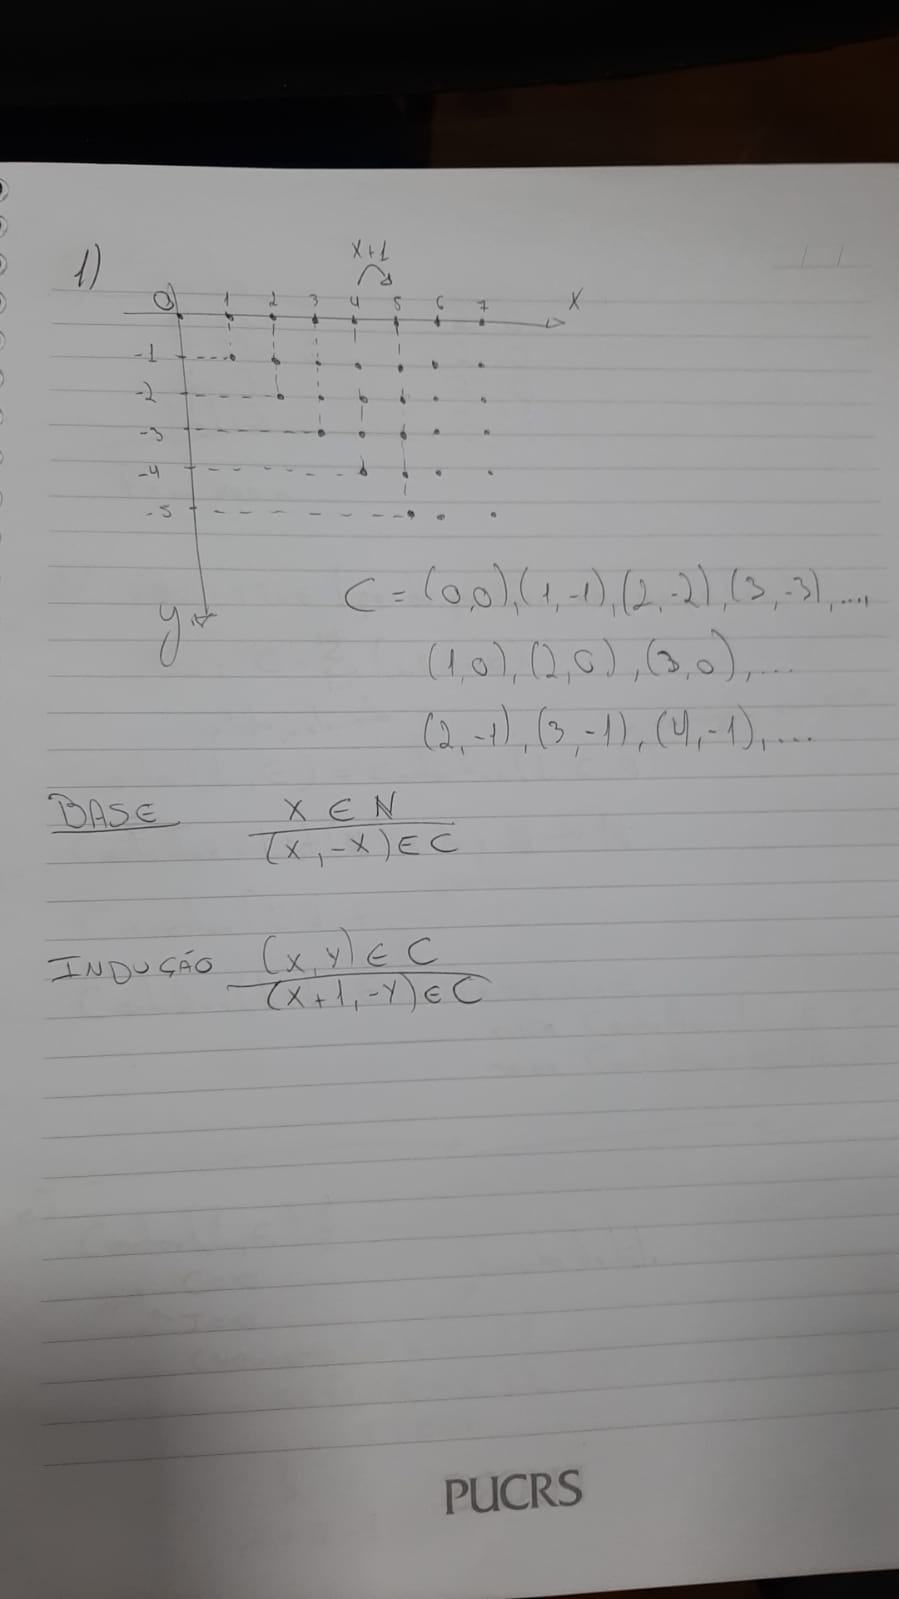 1)
x+1
0 1 2 3 4 5 6 7 x
-1
-2
-3
-4
-5
y
C = (0,0), (1,-1), (2,-2), (3,-3), ...,
(1,0), (2,0), (3,0), ...
(2,-1), (3,-1), (4,-1), ...
BASE x ∈ N
(x,-x) ∈ C
INDUÇÃO (x,y) ∈ C
(x+1,-y) ∈ C
PUCRS